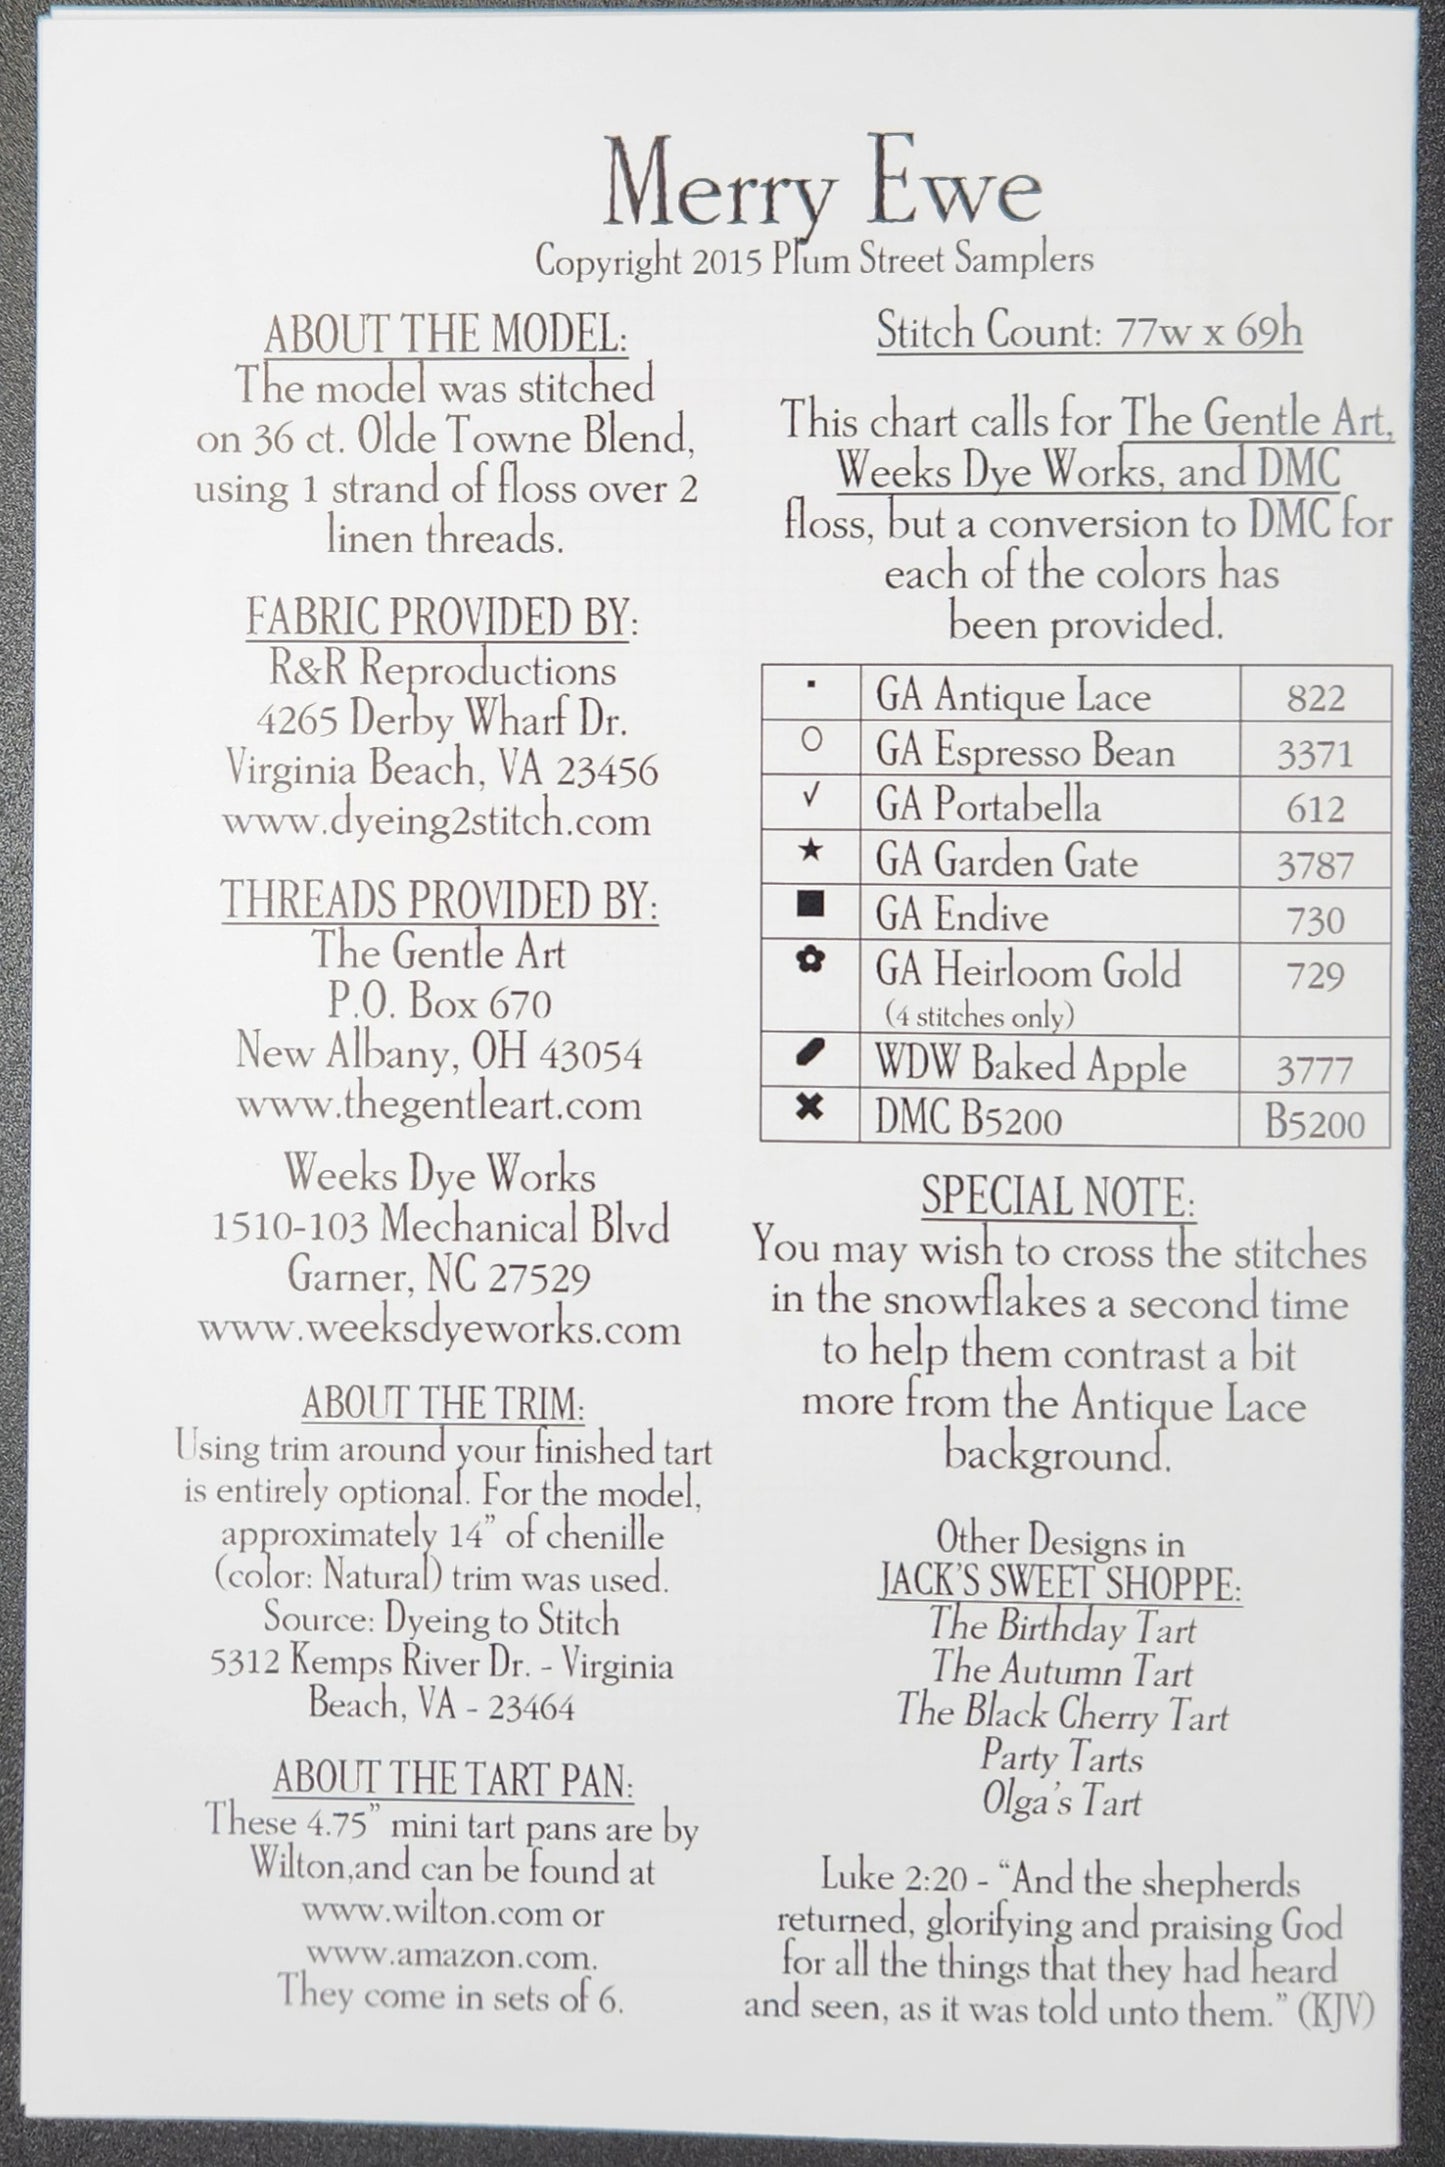 Merry Ewe
Copyright 2015 Plum Street Samplers
ABOUT THE MODEL:
The model was stitched
on 36 ct. Olde Towne Blend,
using 1 strand of floss over 2
linen threads.
FABRIC PROVIDED BY:
R&R Reproductions
4265 Derby Wharf Dr.
Virginia Beach, VA 23456
www.dyeing2stitch.com
THREADS PROVIDED BY:
The Gentle Art
P.O. Box 670
New Albany, OH 43054
www.thegentleart.com
Weeks Dye Works
1510-103 Mechanical Blvd
Garner, NC 27529
www.weeksdyeworks.com
ABOUT THE TRIM:
Using trim around your finished tart
is entirely optional. For the model,
approximately 14" of chenille
(color: Natural) trim was used.
Source: Dyeing to Stitch
5312 Kemps River Dr. - Virginia
Beach, VA - 23464
ABOUT THE TART PAN:
These 4.75" mini tart pans are by
Wilton,and can be found at
www.wilton.com or
www.amazon.com.
They come in sets of 6.
Stitch Count: 77w x 69h
This chart calls for The Gentle Art,
Weeks Dye Works, and DMC
floss, but a conversion to DMC for
each of the colors has
been provided.
▪ GA Antique Lace 822
○ GA Espresso Bean 3371
√ GA Portabella 612
★ GA Garden Gate 3787
■ GA Endive 730
✿ GA Heirloom Gold 729
(4 stitches only)
WDW Baked Apple 3777
✖ DMC B5200 B5200
SPECIAL NOTE:
You may wish to cross the stitches
in the snowflakes a second time
to help them contrast a bit
more from the Antique Lace
background.
Other Designs in
JACK'S SWEET SHOPPE:
The Birthday Tart
The Autumn Tart
The Black Cherry Tart
Party Tarts
Olga's Tart
Luke 2:20 - "And the shepherds
returned, glorifying and praising God
for all the things that they had heard
and seen, as it was told unto them." (KJV)